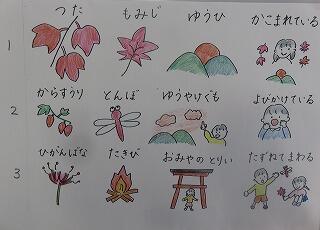 つた もみじ ゆうひ かこまれている
1
からすうり とんぼ ゆうやけぐも よびかけている
2
ひがんばな たきび おみやのとりい たずねてまわる
3